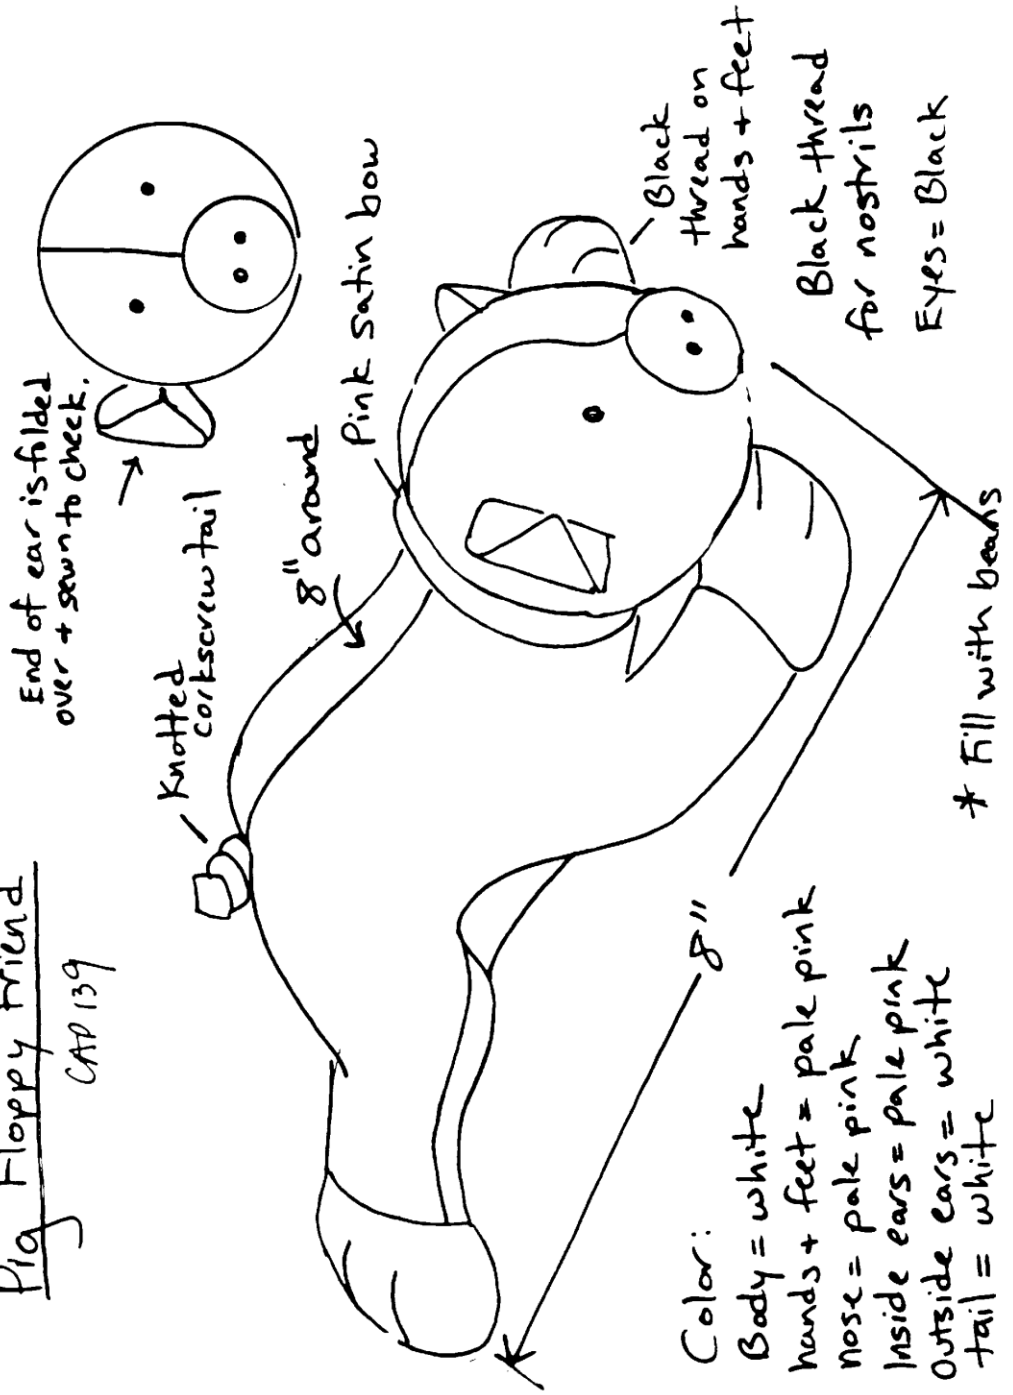 Pig Floppy Friend
CAP 139
End of ear is folded
over + sewn to cheek.
Knotted
corkscrew tail
8" around
Pink satin bow
Black
thread on
hands + feet
Black thread
for nostrils
Eyes = Black
8"
* Fill with beans
Color:
Body = white
hands + feet = pale pink
nose = pale pink
Inside ears = pale pink
Outside ears = white
tail = white